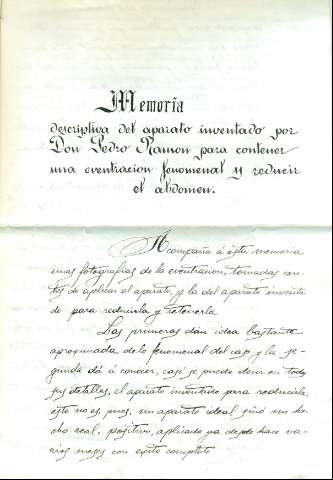 Memoria
descriptiva del aparato inventado por
Don Pedro Ramon para contener
una eventracion fenomenal y reducir
el abdomen.
Acompaña á esta memoria
unas fotografias de la eventracion, tomadas an-
tes de aplicar el aparato, y la del aparato inventa
do para reducirla y retenerla
Las primeras dan idea bastante
aproximada de lo fenomenal del caso y la se-
gunda dá á conocer, casi se puede decir en todos
sus detalles, el aparato inventado para reducirla,
éste no es pues, un aparato ideal sinó un he
cho real, positivo, aplicado ya desde hace va-
rios meses con exito completo